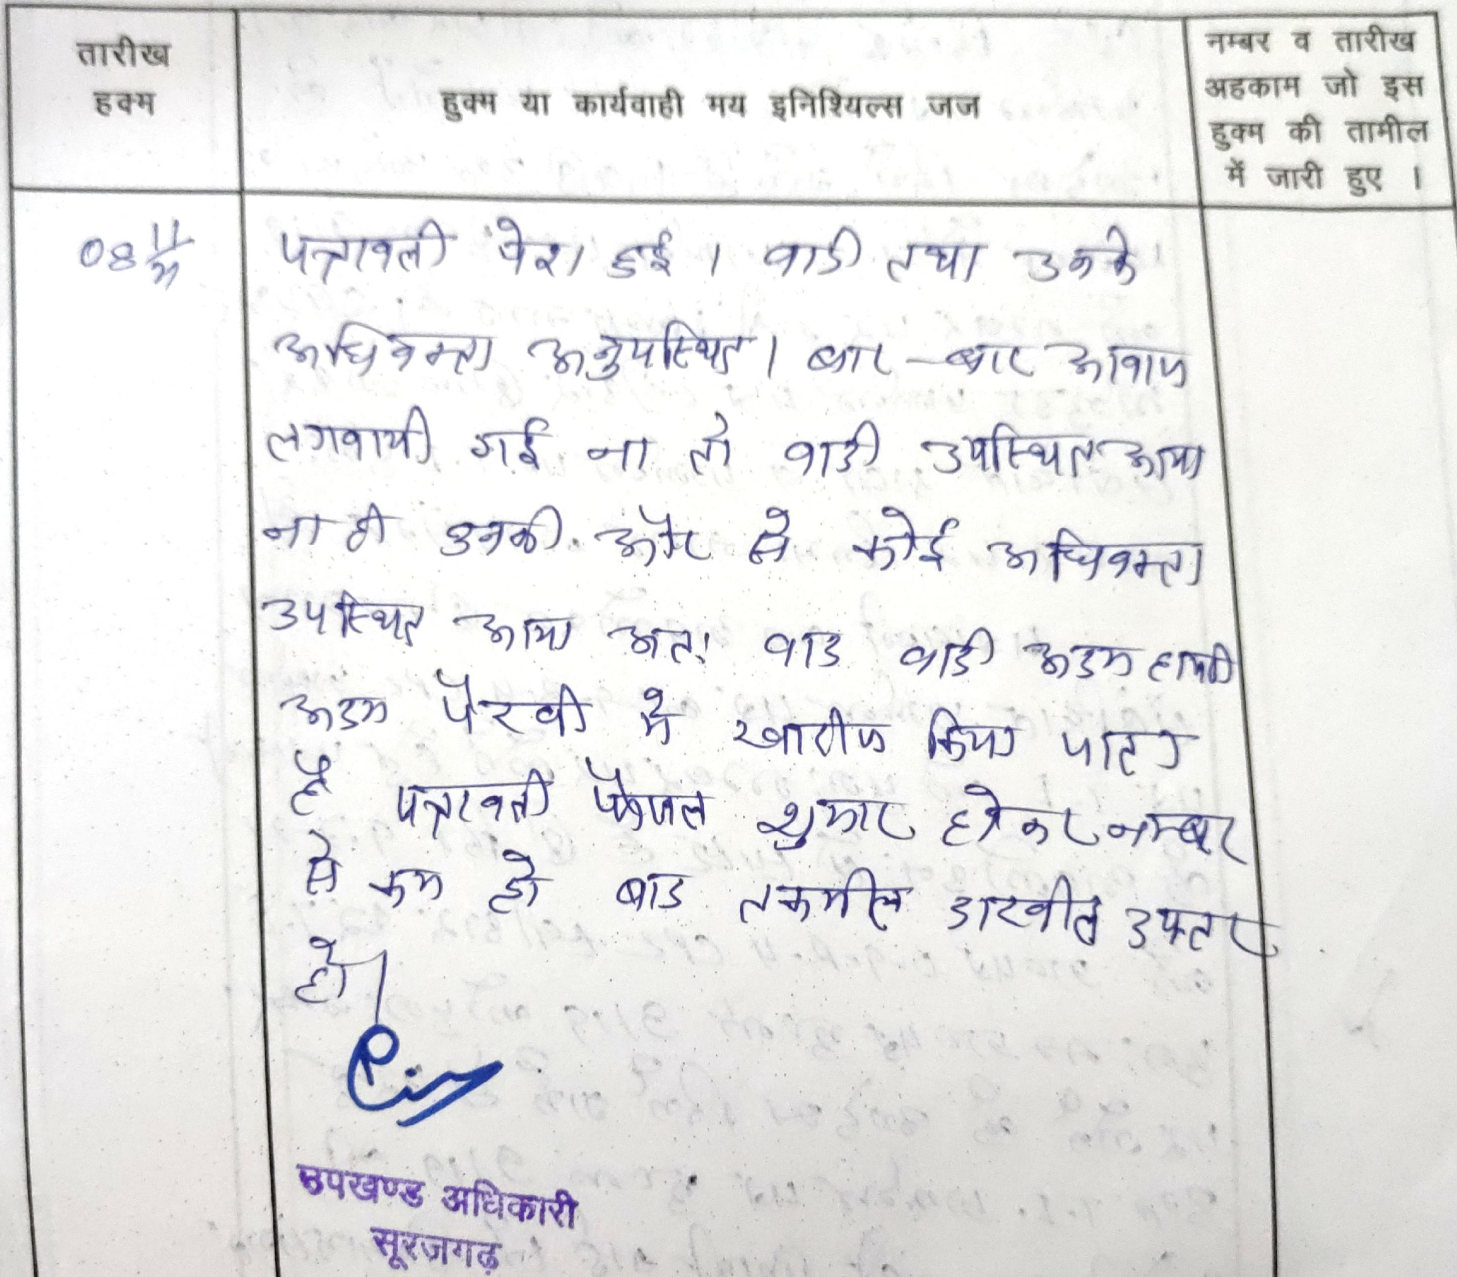 तारीख
हुक्म
हुक्म या कार्यवाही मय इनिशियल्स जज
नम्बर व तारीख
अहकाम जो इस
हुक्म की तामील
में जारी हुए ।
08 11
पत्रावली पेश हुई । वादी तथा उनके
अधिवक्ता अनुपस्थित । बार-बार आवाज
लगवायी गई ना तो वादी उपस्थित आया
ना ही उनकी और से कोई अधिवक्ता
उपस्थित आया अतः वाद वादी अदम हाजरी
अदम पैरवी में खारीज किया जाता
है पत्रावली फैजल शुमार होकर नम्बर
से कम हो बाद तकमील दाखील दफ्तर
हो।
उपखण्ड अधिकारी
सूरजगढ़